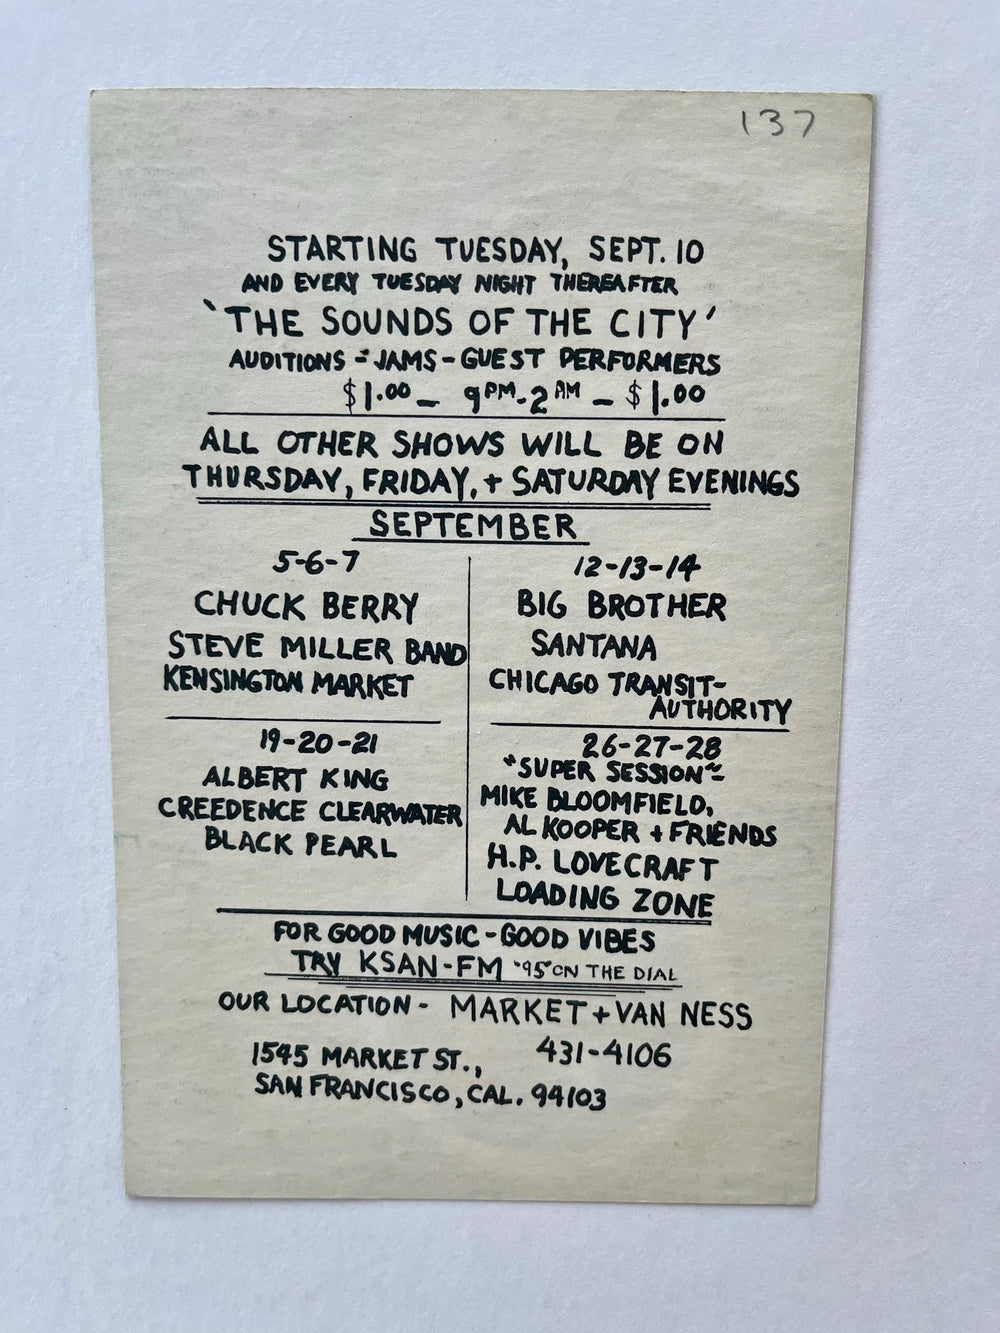 137
STARTING TUESDAY, SEPT. 10
AND EVERY TUESDAY NIGHT THEREAFTER
'THE SOUNDS OF THE CITY'
AUDITIONS - JAMS - GUEST PERFORMERS
$1.00 - 9PM-2AM - $1.00
ALL OTHER SHOWS WILL BE ON
THURSDAY, FRIDAY, + SATURDAY EVENINGS
SEPTEMBER
5-6-7
CHUCK BERRY
STEVE MILLER BAND
KENSINGTON MARKET
12-13-14
BIG BROTHER
SANTANA
CHICAGO TRANSIT-
AUTHORITY
19-20-21
ALBERT KING
CREEDENCE CLEARWATER
BLACK PEARL
26-27-28
"SUPER SESSION"-
MIKE BLOOMFIELD,
AL KOOPER + FRIENDS
H.P. LOVECRAFT
LOADING ZONE
FOR GOOD MUSIC - GOOD VIBES
TRY KSAN-FM '95' ON THE DIAL
OUR LOCATION - MARKET + VAN NESS
1545 MARKET ST., 431-4106
SAN FRANCISCO, CAL. 94103